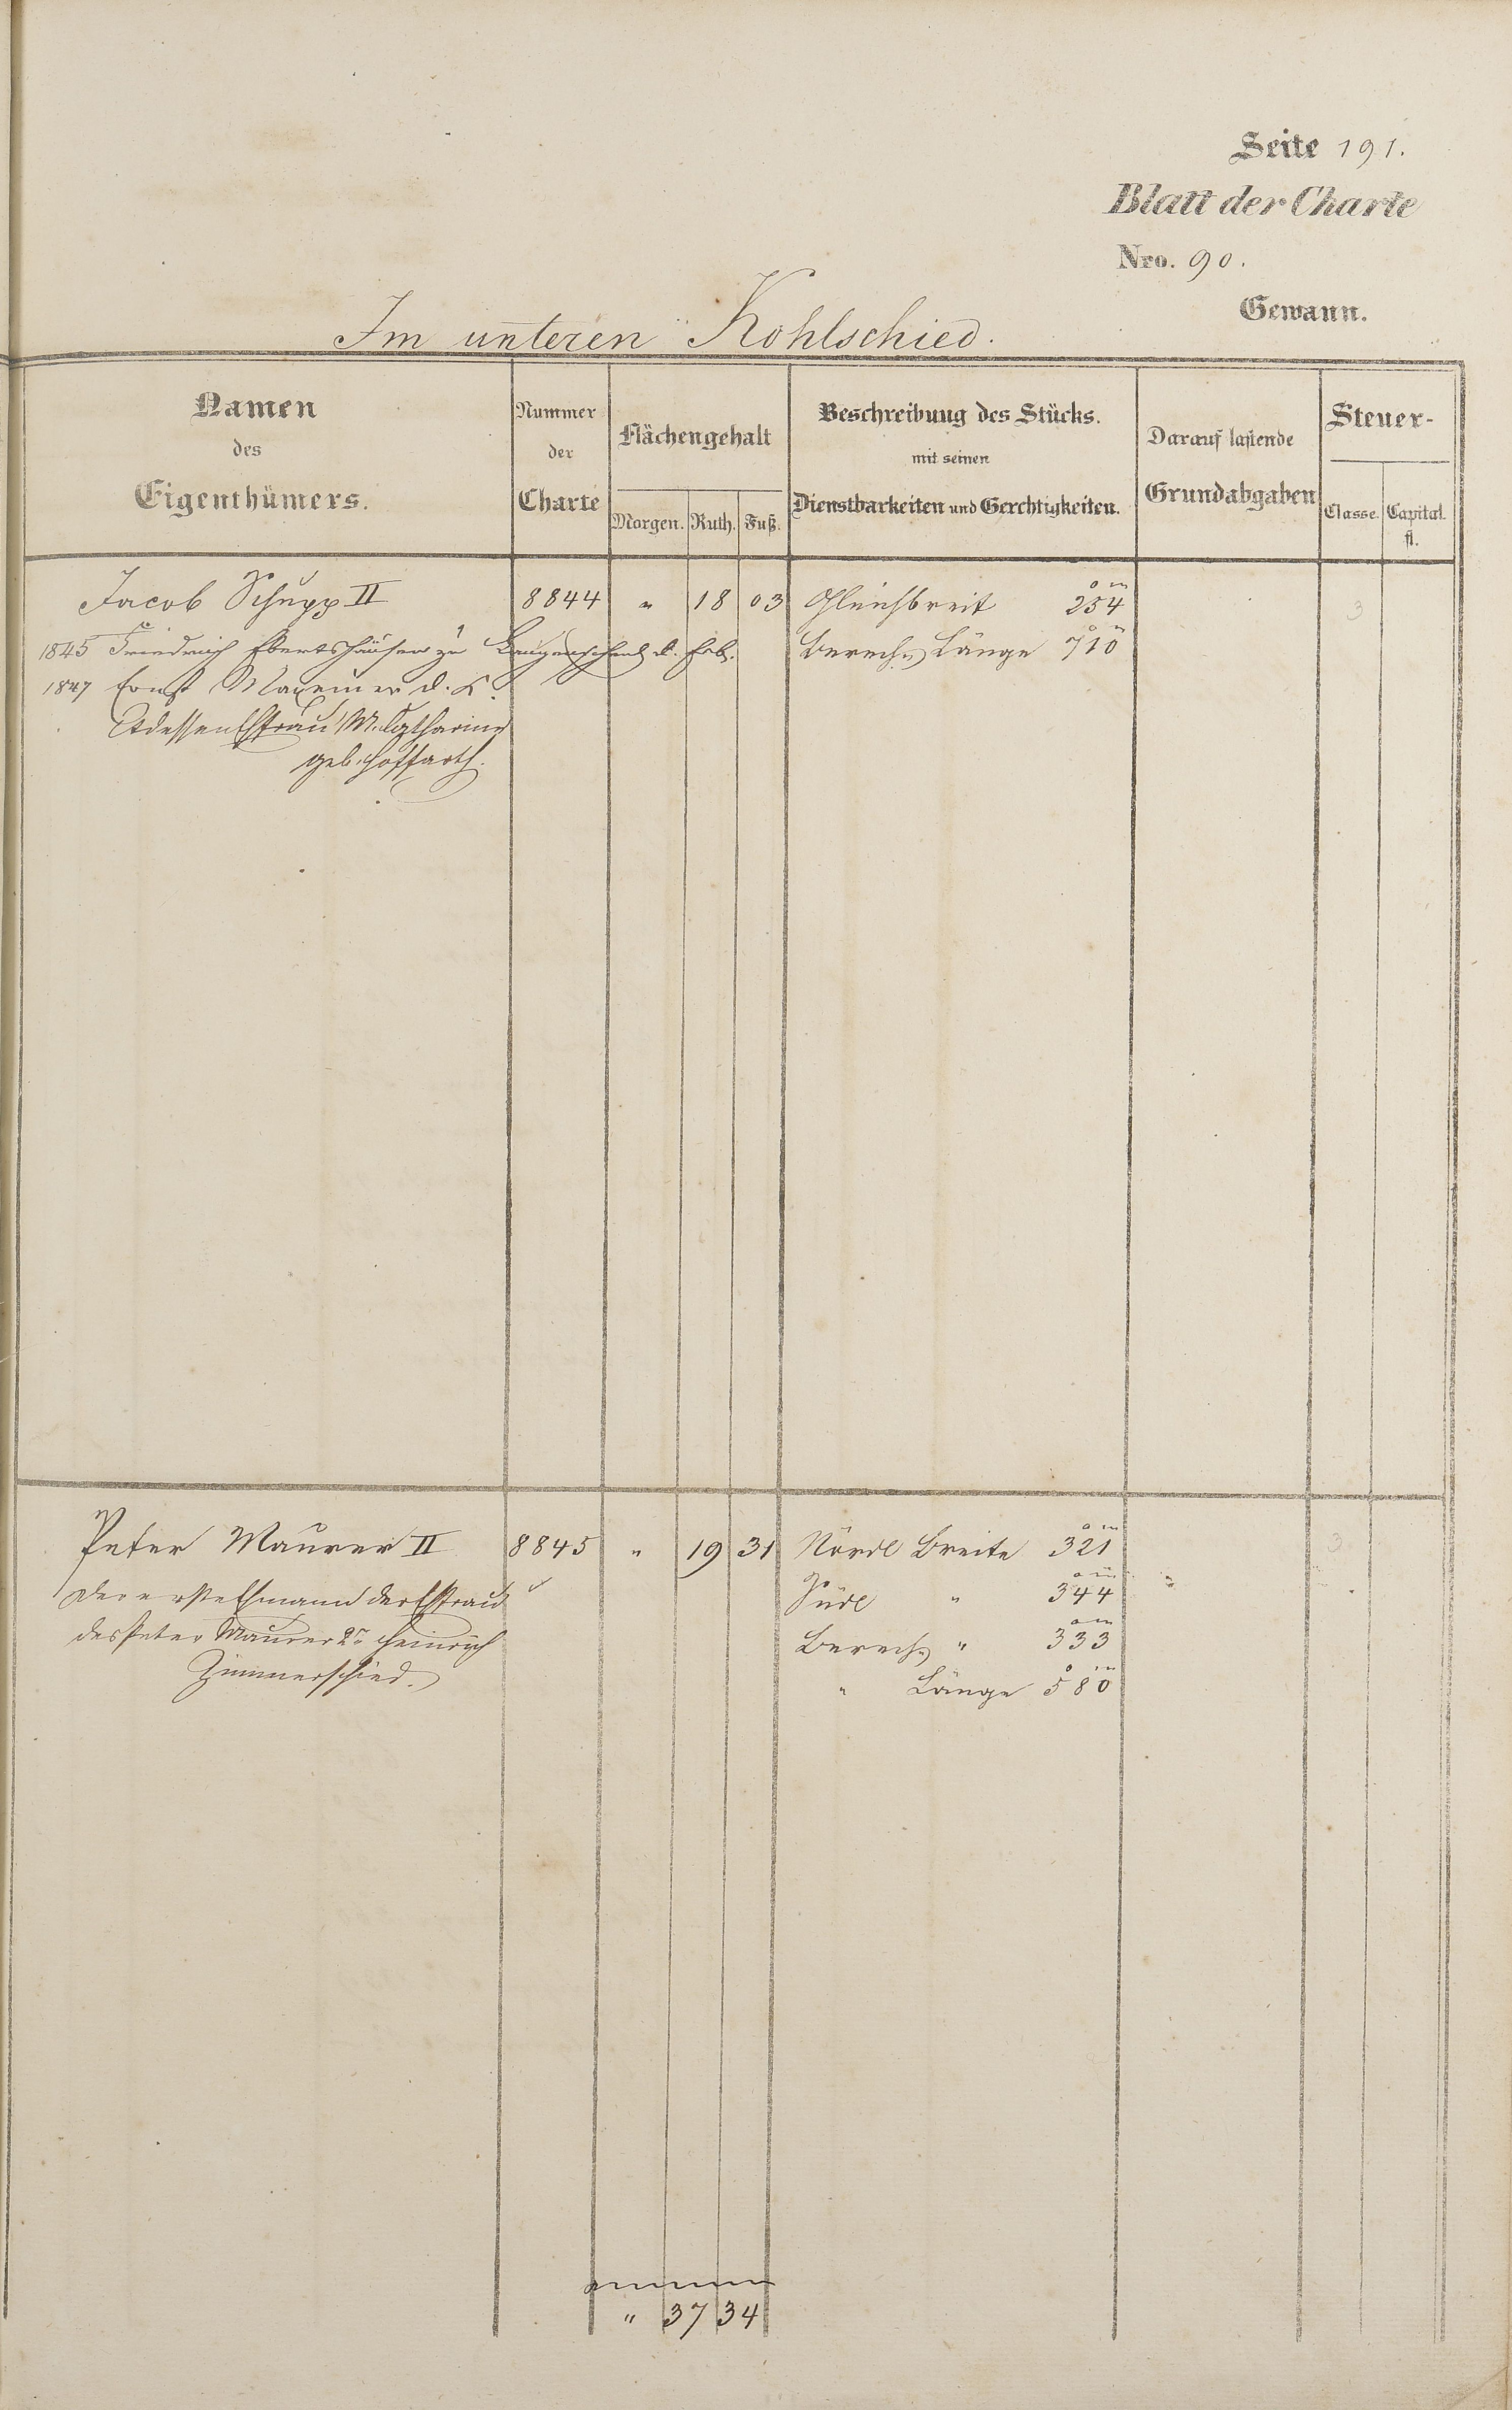 Seite 191.
Blatt der Charte
Nro. 90.
Gewann.
Im unteren Kohlschied.
Namen des Eigenthümers.
Nummer der Charte
Flächengehalt
Morgen. Ruth. Fuß.
Beschreibung des Stücks.
mit seinen
Dienstbarkeiten und Gerechtigkeiten.
Darauf lastende
Grundabgaben
Steuer-
Classe. Capital. fl.
Jacob Schupp II 8844 " 18 03 Gleichbreit 254 3
1845 Friedrich Ebertshäuser zu d. Erb. Berech. Länge 710
1847 Ernst d. K.
dessen Ehfrau M. Catharine
geb. Hoffarth.
Peter Maurer II 8845 " 19 31 Nördl Breite 321 3
Der erste Ehmann der Ehfrau Südl " 344
des Peter Maurer 2r Heinrich Berech " 333
Zimmerschied. " Länge 580
" 37 34